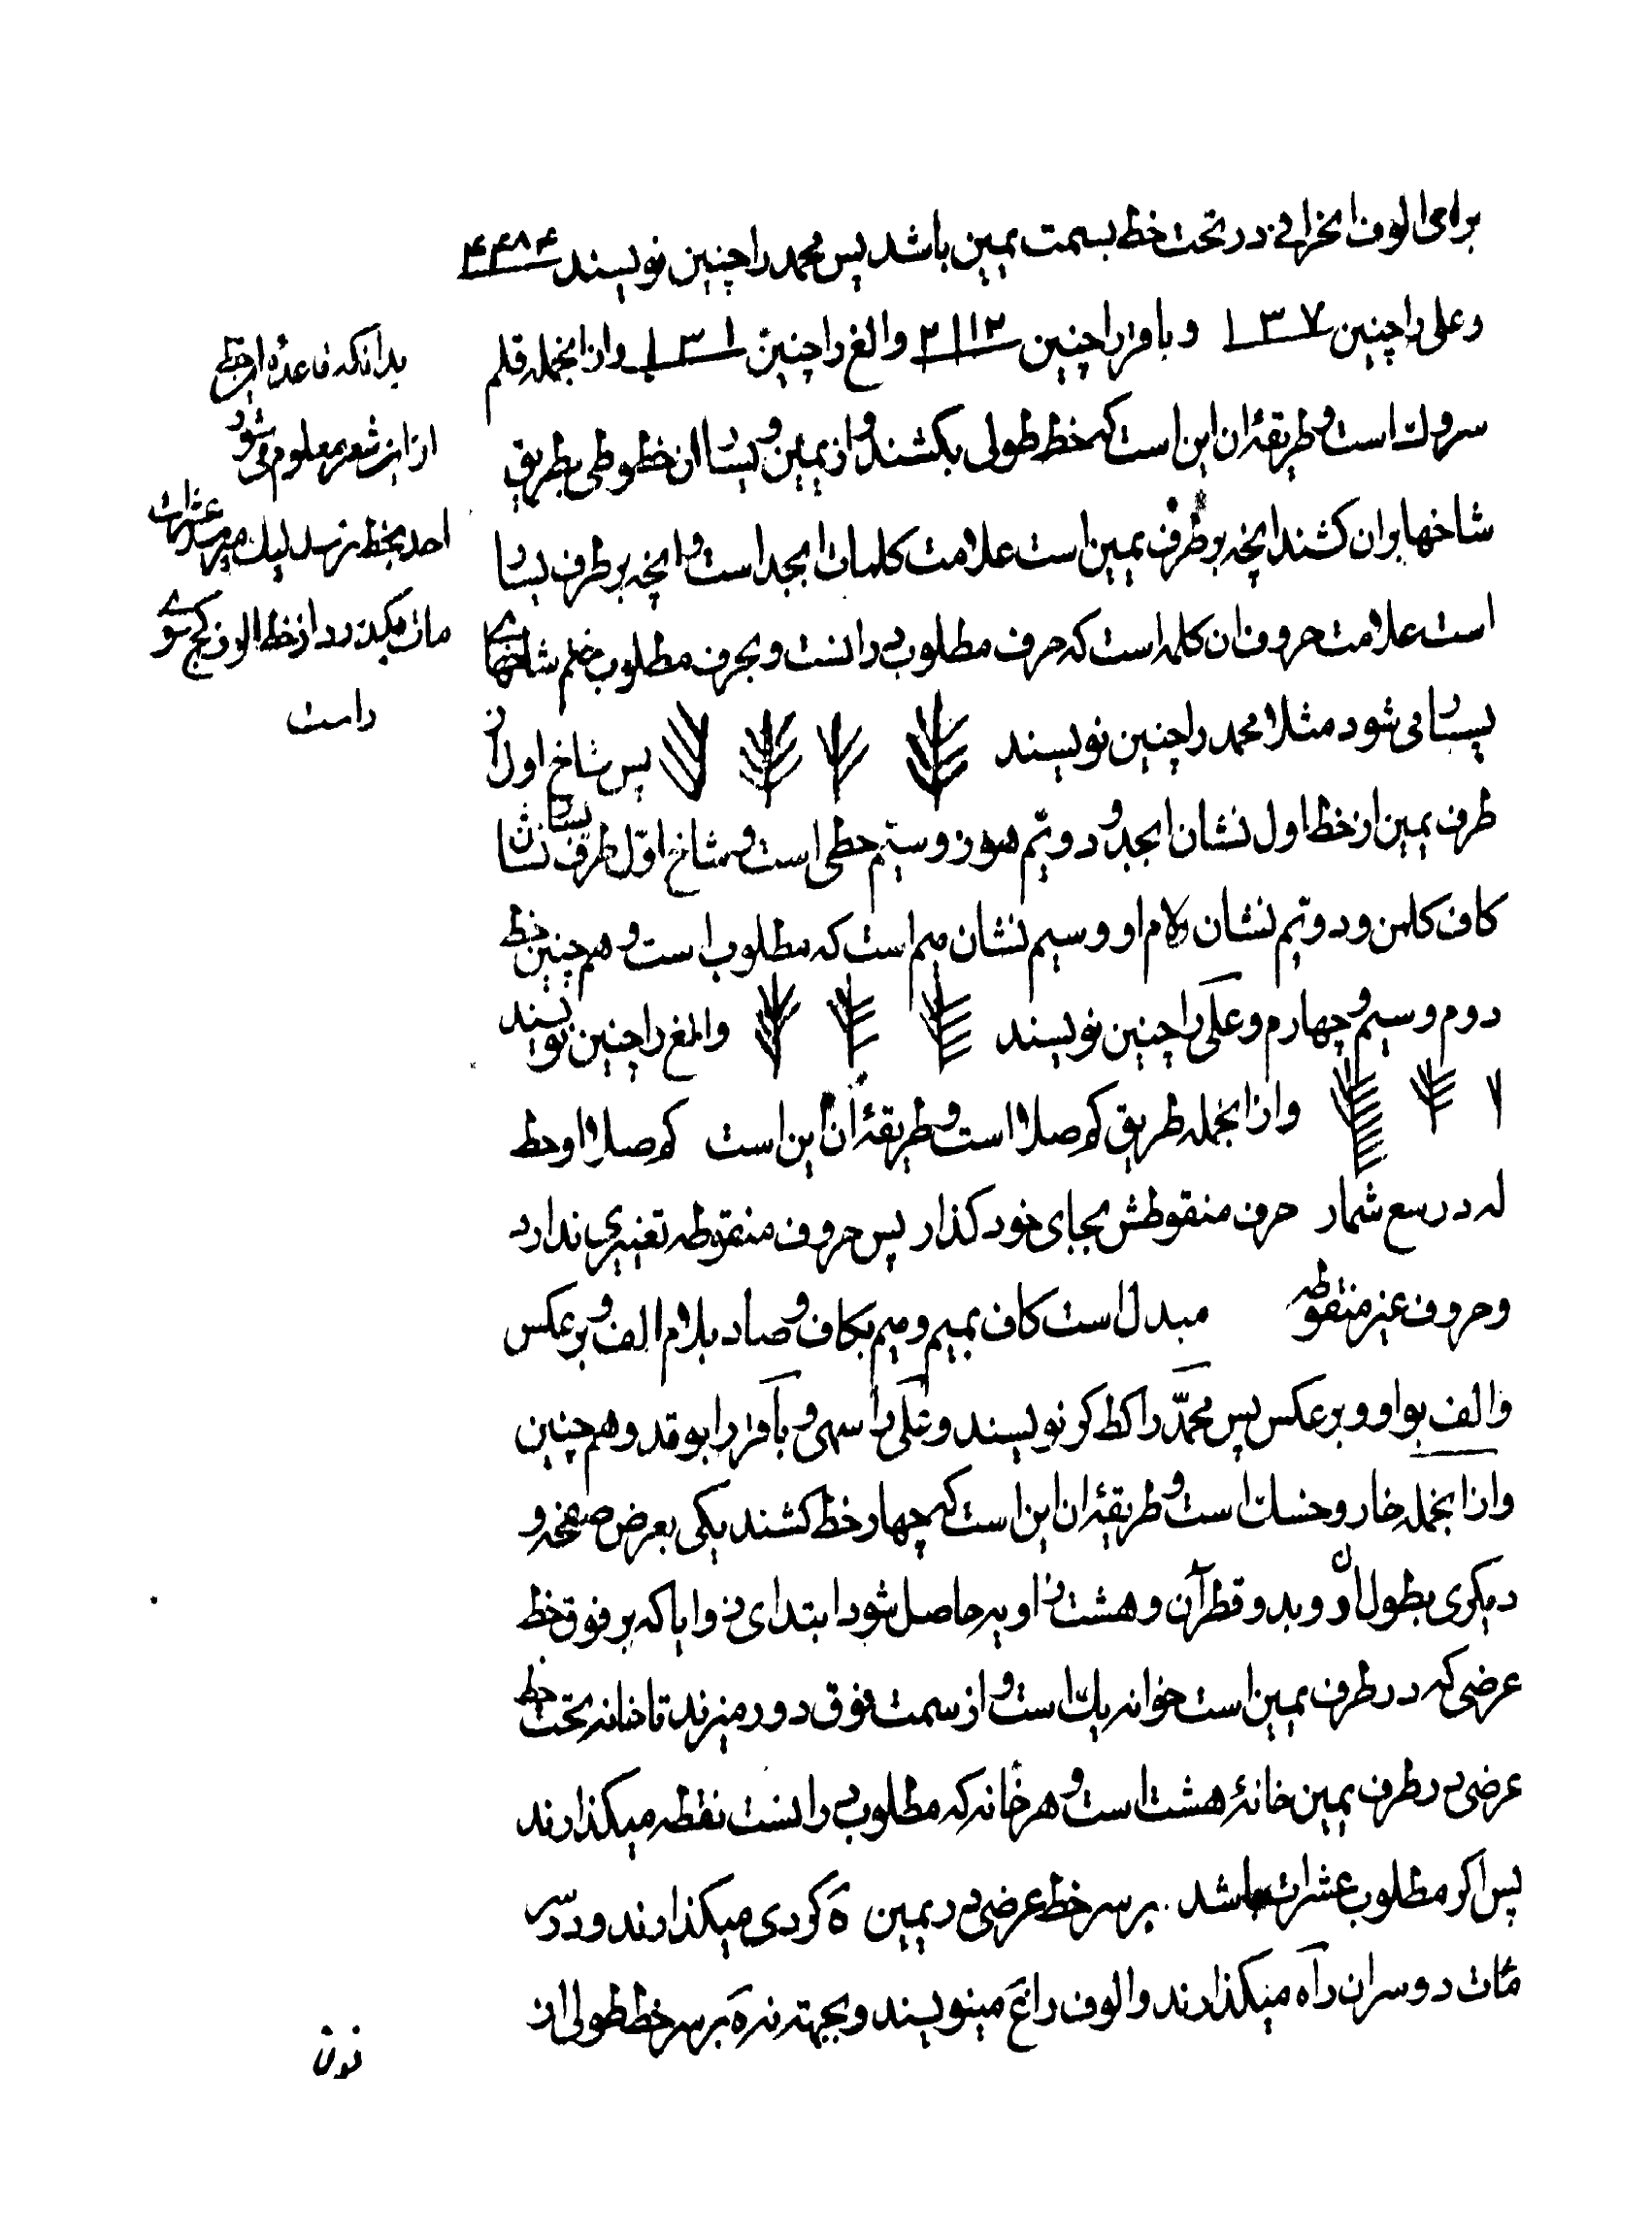 برای الوف انحرافی در تحت خط بسمت یمین باشد پس محمد را چنین نویسند ۴۴۸۴
و علی را چنین ۱۳۷ و باقر را چنین ۲۱۱۲ والغ را چنین ۱۳۱ و از انجمله قلم
سرولت است و طریقهٔ ان این است که خط طولی بکشند و از یمین و یسار ان خطوطی بطریق
شاخها بران کشند انچه بر طرف یمین است علامت کلمات ابجد است و انچه بر طرف یسار
است علامت حروف ان کلمه است که حرف مطلوب در انست و بحرف مطلوب ختم شاخهای
یسار می شود مثلا محمد را چنین نویسند پس شاخ اول از
طرف یمین از خط اول نشان ابجد و دویّم هوز و سیّم حطی است و شاخ اوّل طرف یسار نشان
کاف کلمن و دویّم نشان لام او و سیم نشان میم است که مطلوب است و هم چنین خط
دوم و سیم و چهارم و علی را چنین نویسند والغ را چنین نویسند
و از انجمله طریق کم صلا است و طریقهٔ ان این است کم صلا او حط
له در سع شمار حرف منقوطش بجای خود کذار پس حروف منقوطه تغییری ندارد
و حروف غیر منقوطه مبدل است کاف بمیم و میم بکاف و صاد بلام الف و بر عکس
والف بواو و برعکس پس محمّد را کط کر نویسند و علی را سهی و باقر را بوقد و هم چنین
و از انجمله خار و خسات است و طریقهٔ ان این است که چهار خط کشند یکی بعرض صفحه و
دیکری بطول ان و بدو قطر آن و هشت زاویه حاصل شود ابتدای زوایا که بر فوق خط
عرضی که در طرف یمین است خوانه یک است و از سمت فوق دور میزند تا خانه تحت خط
عرضی در طرف یمین خانهٔ هشت است و هر خانه که مطلوب در انست نقطه میکذارند
پس اکر مطلوب عشرات باشد بر سر خط عرضی در یمین هٔ کوردی میکذارند و در سر
مئات دو سران راه میکذارند و الوف را غ مینویسند و بجهته نره بر سر خط طولی از
بدانکه قاعدهٔ این خط
از این شعر معلوم می شود
احد بخط نرسد لیک میرسد عشرات
مات میکذرد از خط الوف کج سوی
راست
فوق